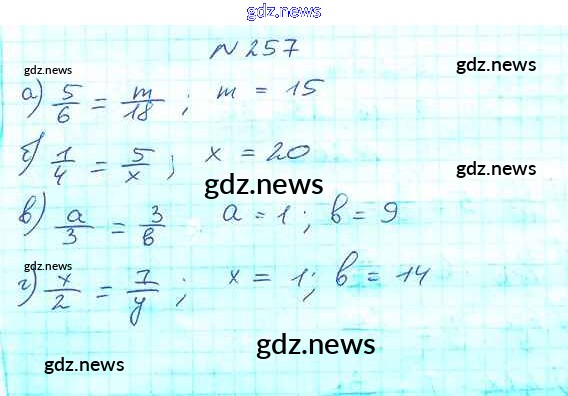 gdz.news
N 257
gdz.news
а) 5/6 = m/18 ; m = 15
gdz.news
б) 1/4 = 5/x ; x = 20
gdz.news
gdz.news
в) a/3 = 3/b a = 1 ; b = 9
gdz.news
г) x/2 = 7/y ; x = 1; b = 14
gdz.news
gdz.news
gdz.news